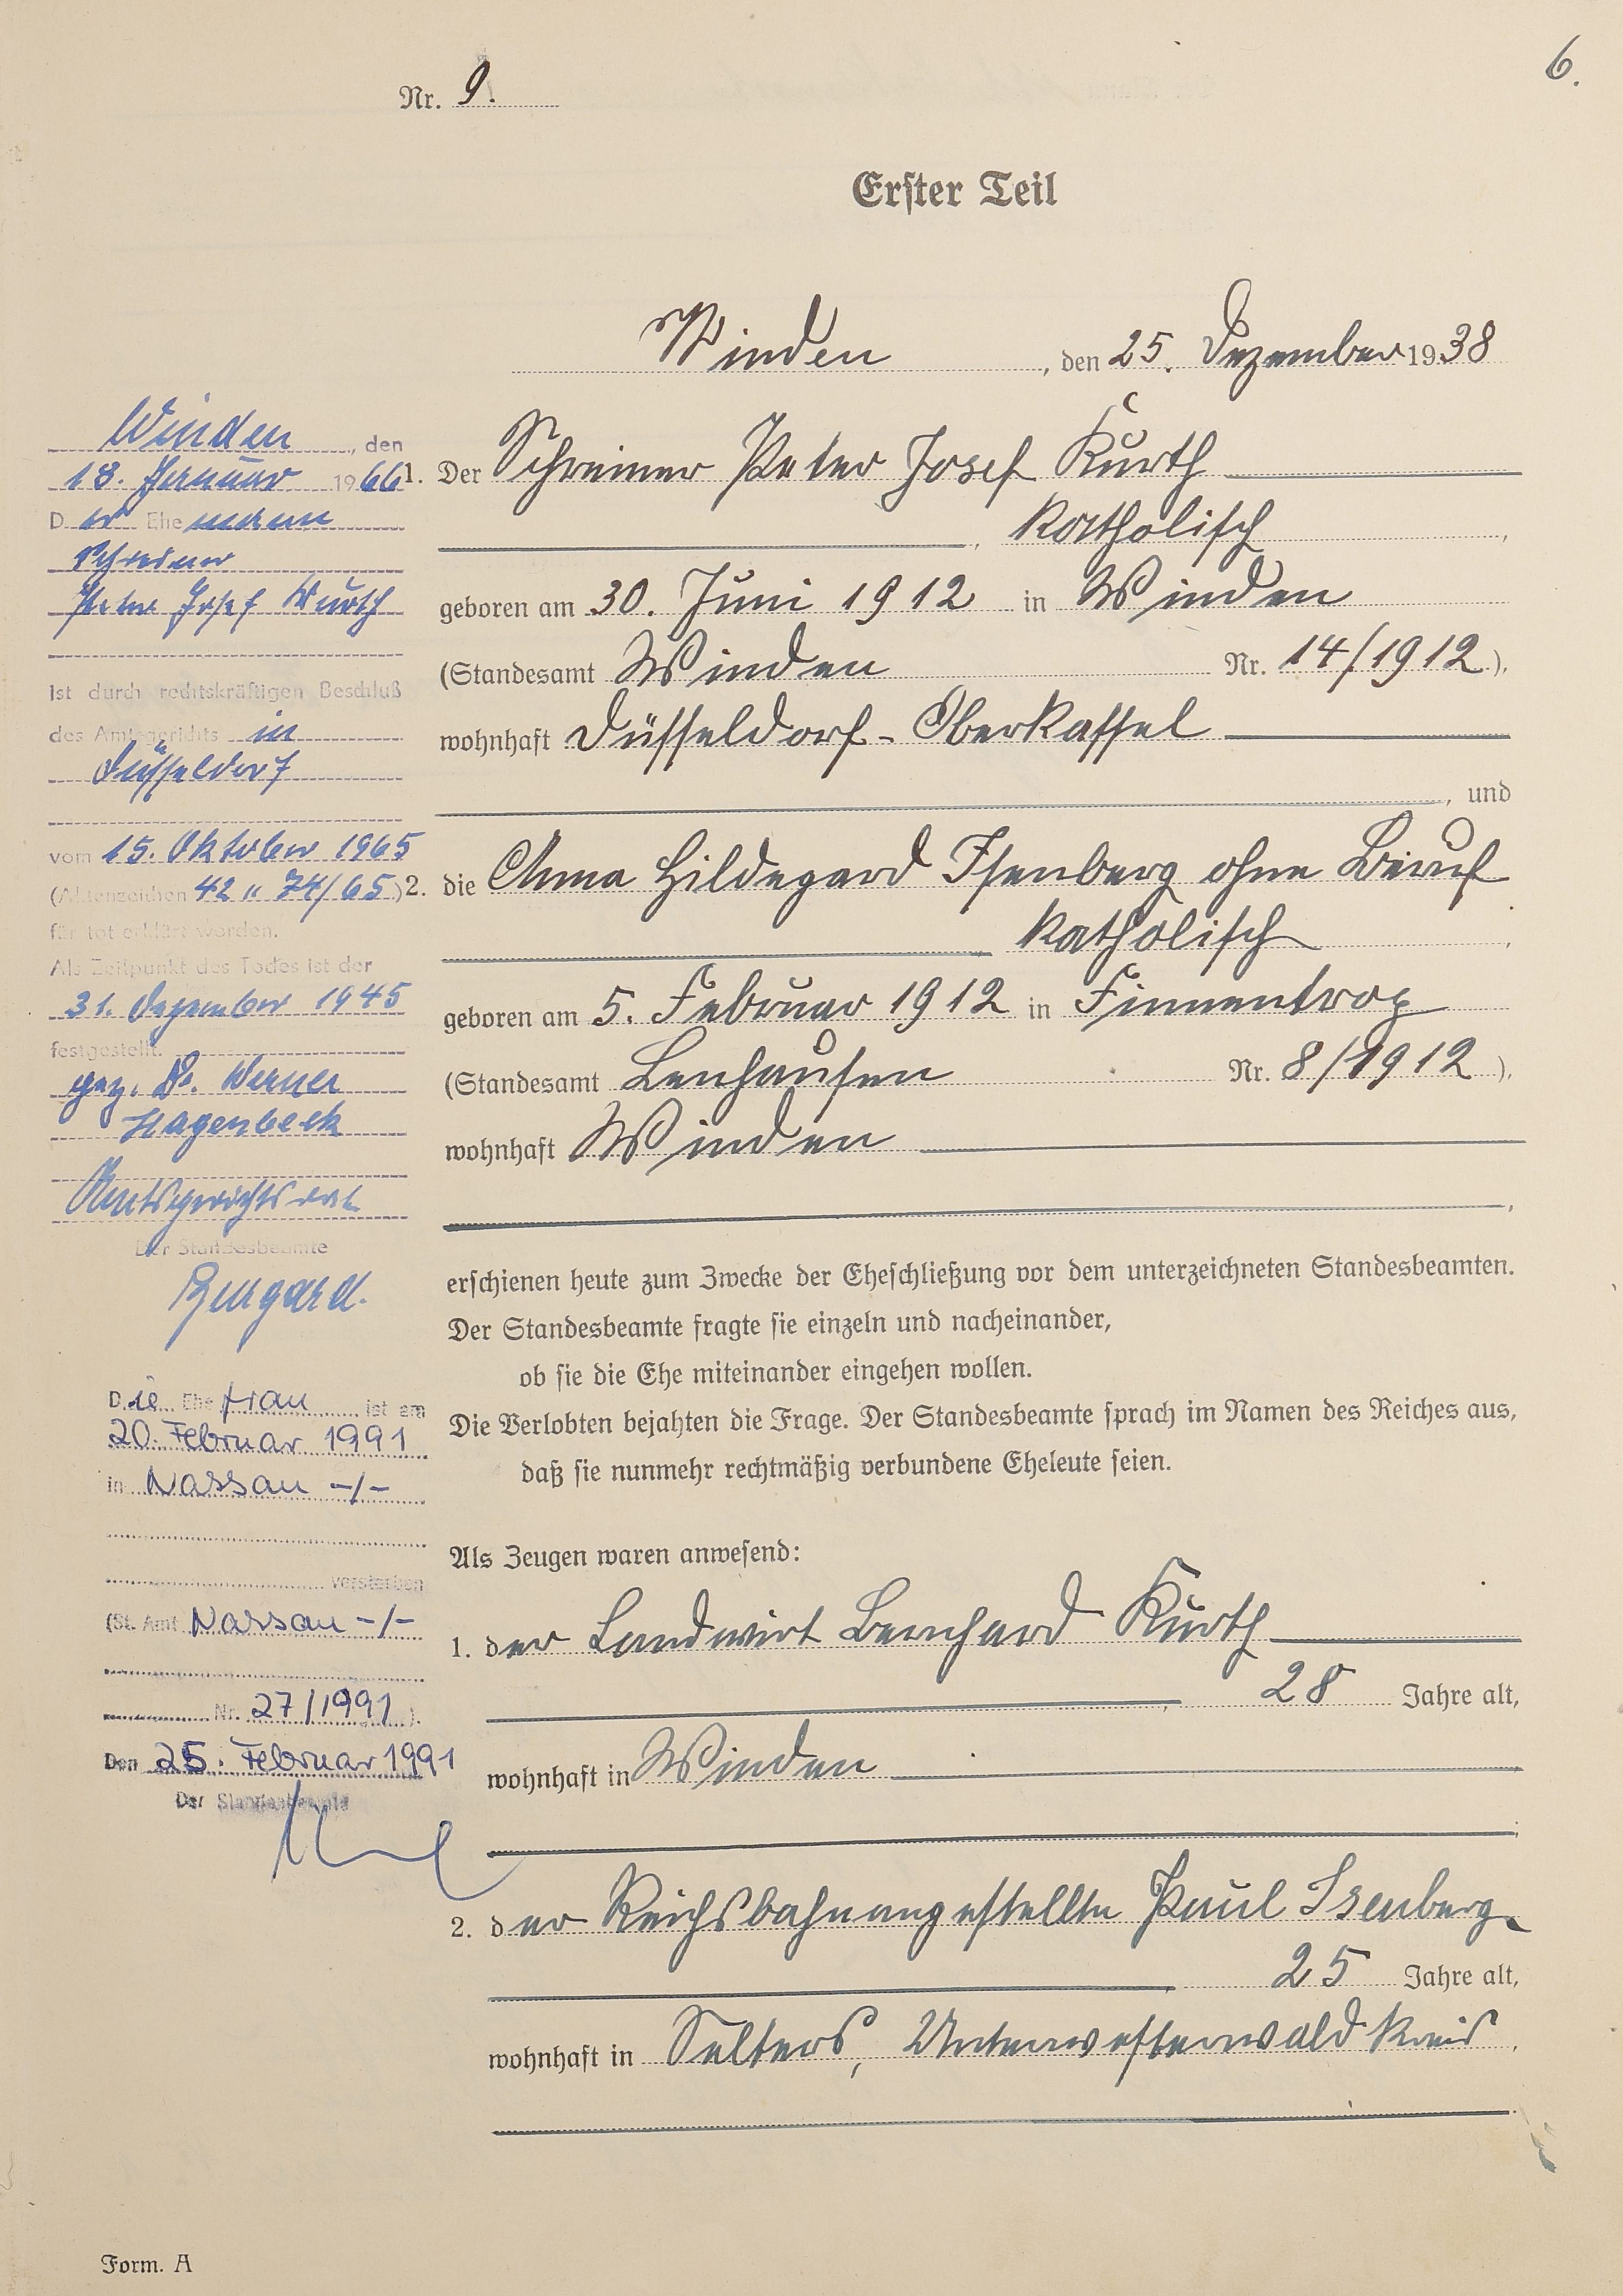 6.
Nr. 9.
Erster Teil
Winden, den 25. Dezember 1938
1. Der Schreiner Peter Josef Kurth
katholisch,
geboren am 30. Juni 1912 in Winden
(Standesamt Winden Nr. 14/1912),
wohnhaft Düsseldorf-Oberkassel
, und
2. die Anna Hildegard Isenberg ohne Beruf
katholisch,
geboren am 5. Februar 1912 in Finnentrop
(Standesamt Lenhausen Nr. 8/1912),
wohnhaft Winden
erschienen heute zum Zwecke der Eheschließung vor dem unterzeichneten Standesbeamten.
Der Standesbeamte fragte sie einzeln und nacheinander,
ob sie die Ehe miteinander eingehen wollen.
Die Verlobten bejahten die Frage. Der Standesbeamte sprach im Namen des Reiches aus,
daß sie nunmehr rechtmäßig verbundene Eheleute seien.
Als Zeugen waren anwesend:
1. der Landwirt Bernhard Kurth
28 Jahre alt,
wohnhaft in Winden
2. der Reichsbahnangestellte Paul Isenberg
25 Jahre alt,
wohnhaft in Selters, Unterwesterwaldkreis.
Winden, den
18. Januar 1966
Der Ehemann
Schreiner
Peter Josef Kurth
ist durch rechtskräftigen Beschluß
des Amtsgerichts in
Düsseldorf
vom 15. Oktober 1965
(Aktenzeichen 42 II 74/65)
für tot erklärt worden.
Als Zeitpunkt des Todes ist der
31. Dezember 1945
festgestellt.
gez. Dr. Werner
Hagenbeck
Amtsgerichtsrat
Der Standesbeamte
Burgard.
Die Ehefrau ist am
20. Februar 1991
in Nassau -/-
verstorben
(St. Amt Nassau -/-
Nr. 27/1991).
Den 25. Februar 1991
Der Standesbeamte
Form. A